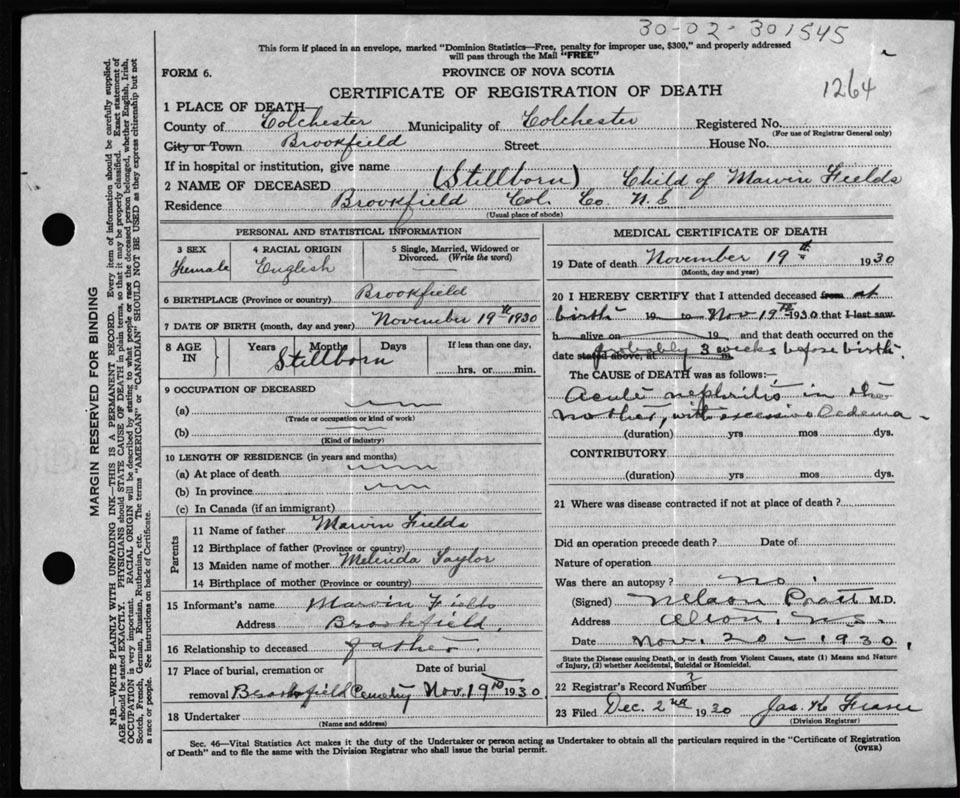 30-02-301545
This form if placed in an envelope, marked "Dominion Statistics—Free, penalty for improper use, $300," and properly addressed
will pass through the Mail "FREE"
FORM 6.
PROVINCE OF NOVA SCOTIA
1264
CERTIFICATE OF REGISTRATION OF DEATH
1 PLACE OF DEATH—
County of Colchester Municipality of Colchester Registered No.
(For use of Registrar General only)
City or Town Brookfield Street House No.
If in hospital or institution, give name
2 NAME OF DECEASED (Stillborn) Child of Marvin Fields
Residence Brookfield Col. Co. N.S
(Usual place of abode)
PERSONAL AND STATISTICAL INFORMATION
3 SEX 4 RACIAL ORIGIN 5 Single, Married, Widowed or
Divorced. (Write the word)
Female English
6 BIRTHPLACE (Province or country) Brookfield
7 DATE OF BIRTH (month, day and year) November 19th 1930
8 AGE IN Years Months Days If less than one day,
Stillborn hrs. or min.
9 OCCUPATION OF DECEASED
(a)
(Trade or occupation or kind of work)
(b)
(Kind of industry)
10 LENGTH OF RESIDENCE (in years and months)
(a) At place of death
(b) In province
(c) In Canada (if an immigrant)
Parents
11 Name of father Marvin Fields
12 Birthplace of father (Province or country)
13 Maiden name of mother Melinda Taylor
14 Birthplace of mother (Province or country)
15 Informant's name Marvin Fields
Address Brookfield,
16 Relationship to deceased father.
17 Place of burial, cremation or Date of burial
removal Brookfield Cemetery Nov. 19th 1930
18 Undertaker
(Name and address)
MEDICAL CERTIFICATE OF DEATH
19 Date of death November 19th 1930
(Month, day and year)
20 I HEREBY CERTIFY that I attended deceased from at
birth 19 to Nov 19th 1930 that I last saw
h alive on 19 and that death occurred on the
probably 3 weeks before birth.
date stated above, at m
The CAUSE of DEATH was as follows:—
Acute nephritis in the
mother, with excessive oedema—
(duration) yrs mos dys.
CONTRIBUTORY
(duration) yrs mos dys.
21 Where was disease contracted if not at place of death?
Did an operation precede death? Date of
Nature of operation
Was there an autopsy? no.
(Signed) Nelson Pratt M.D.
Address Alton, N.S.
Date Nov. 20—1930,
State the Disease causing Death, or in death from Violent Causes, state (1) Means and Nature
of Injury, (2) whether Accidental, Suicidal or Homicidal.
22 Registrar's Record Number 2
23 Filed Dec. 2nd 1930 Jas. K. Fraser
(Division Registrar)
Sec. 46—Vital Statistics Act makes it the duty of the Undertaker or person acting as Undertaker to obtain all the particulars required in the "Certificate of Registration
of Death" and to file the same with the Division Registrar who shall issue the burial permit.
(OVER)
MARGIN RESERVED FOR BINDING
N.B.—WRITE PLAINLY WITH UNFADING INK—THIS IS A PERMANENT RECORD. Every item of information should be carefully supplied.
AGE should be stated EXACTLY. PHYSICIANS should STATE CAUSE OF DEATH in plain terms, so that it may be properly classified. Exact statement of
OCCUPATION is very important. RACIAL ORIGIN will be described by stating to what people or race the deceased person belonged, whether English, Irish,
Scotch, French, German, Russian, Ruthenian, etc. The terms "AMERICAN" or "CANADIAN" SHOULD NOT BE USED as they express citizenship but not
a race or people. See instructions on back of Certificate.